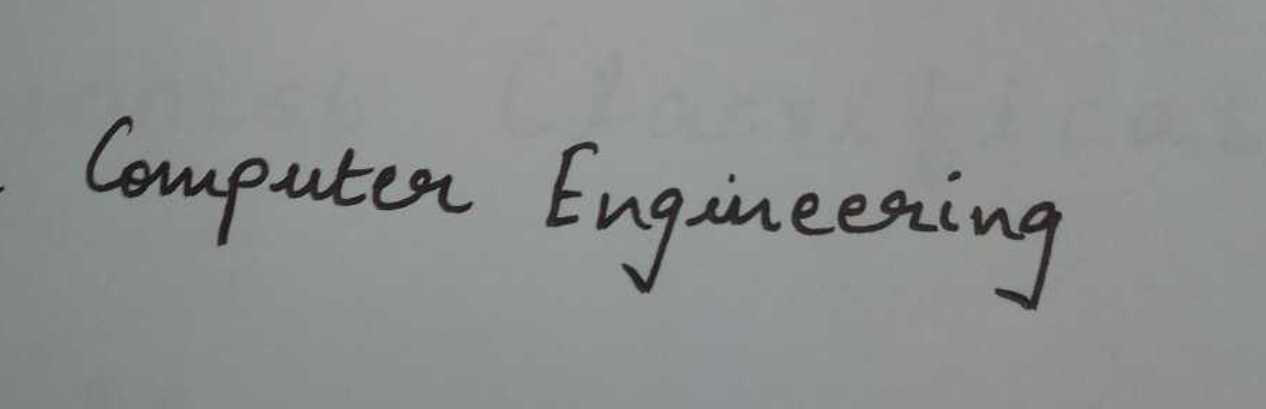 Computer Engineering